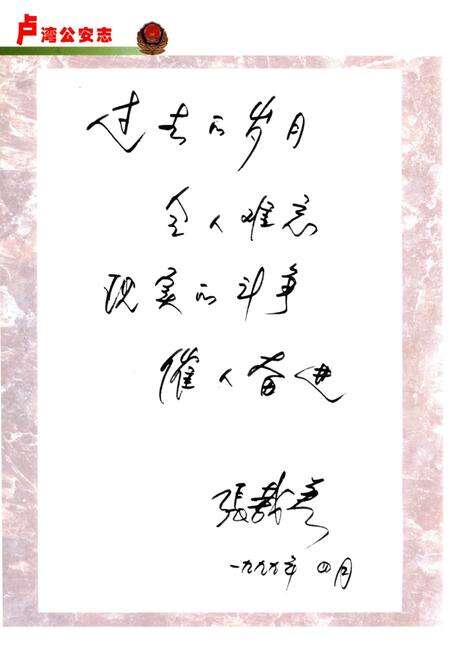 卢湾公安志
过去的岁月
令人难忘
现实的斗争
催人奋进
張載养
一九九九年四月